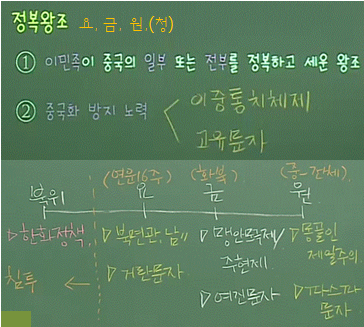 정복왕조 요, 금, 원,(청)
① 이민족이 중국의 일부 또는 전부를 정복하고 세운 왕조
② 중국화 방지 노력
이중통치체제
고유문자
(연운16주) (화북) (중-전체)
북위 요 금 원
▷한화정책 ▷북면관,남〃 ▷맹안모극제/ ▷몽골인
주현제 제일주의
침투 ← ▷거란문자 ▷여진문자 ▷파스파
문자